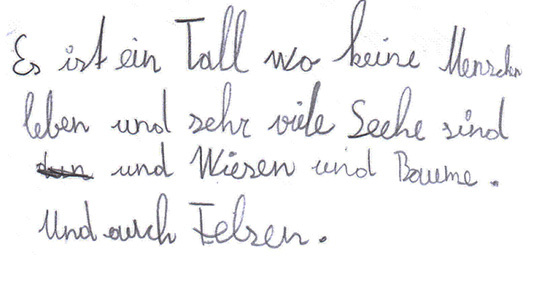 Es ist ein Tall wo keine Menschen
leben und sehr viele Seehe sind
und Wiesen und Baume.
Und auch Felsen.